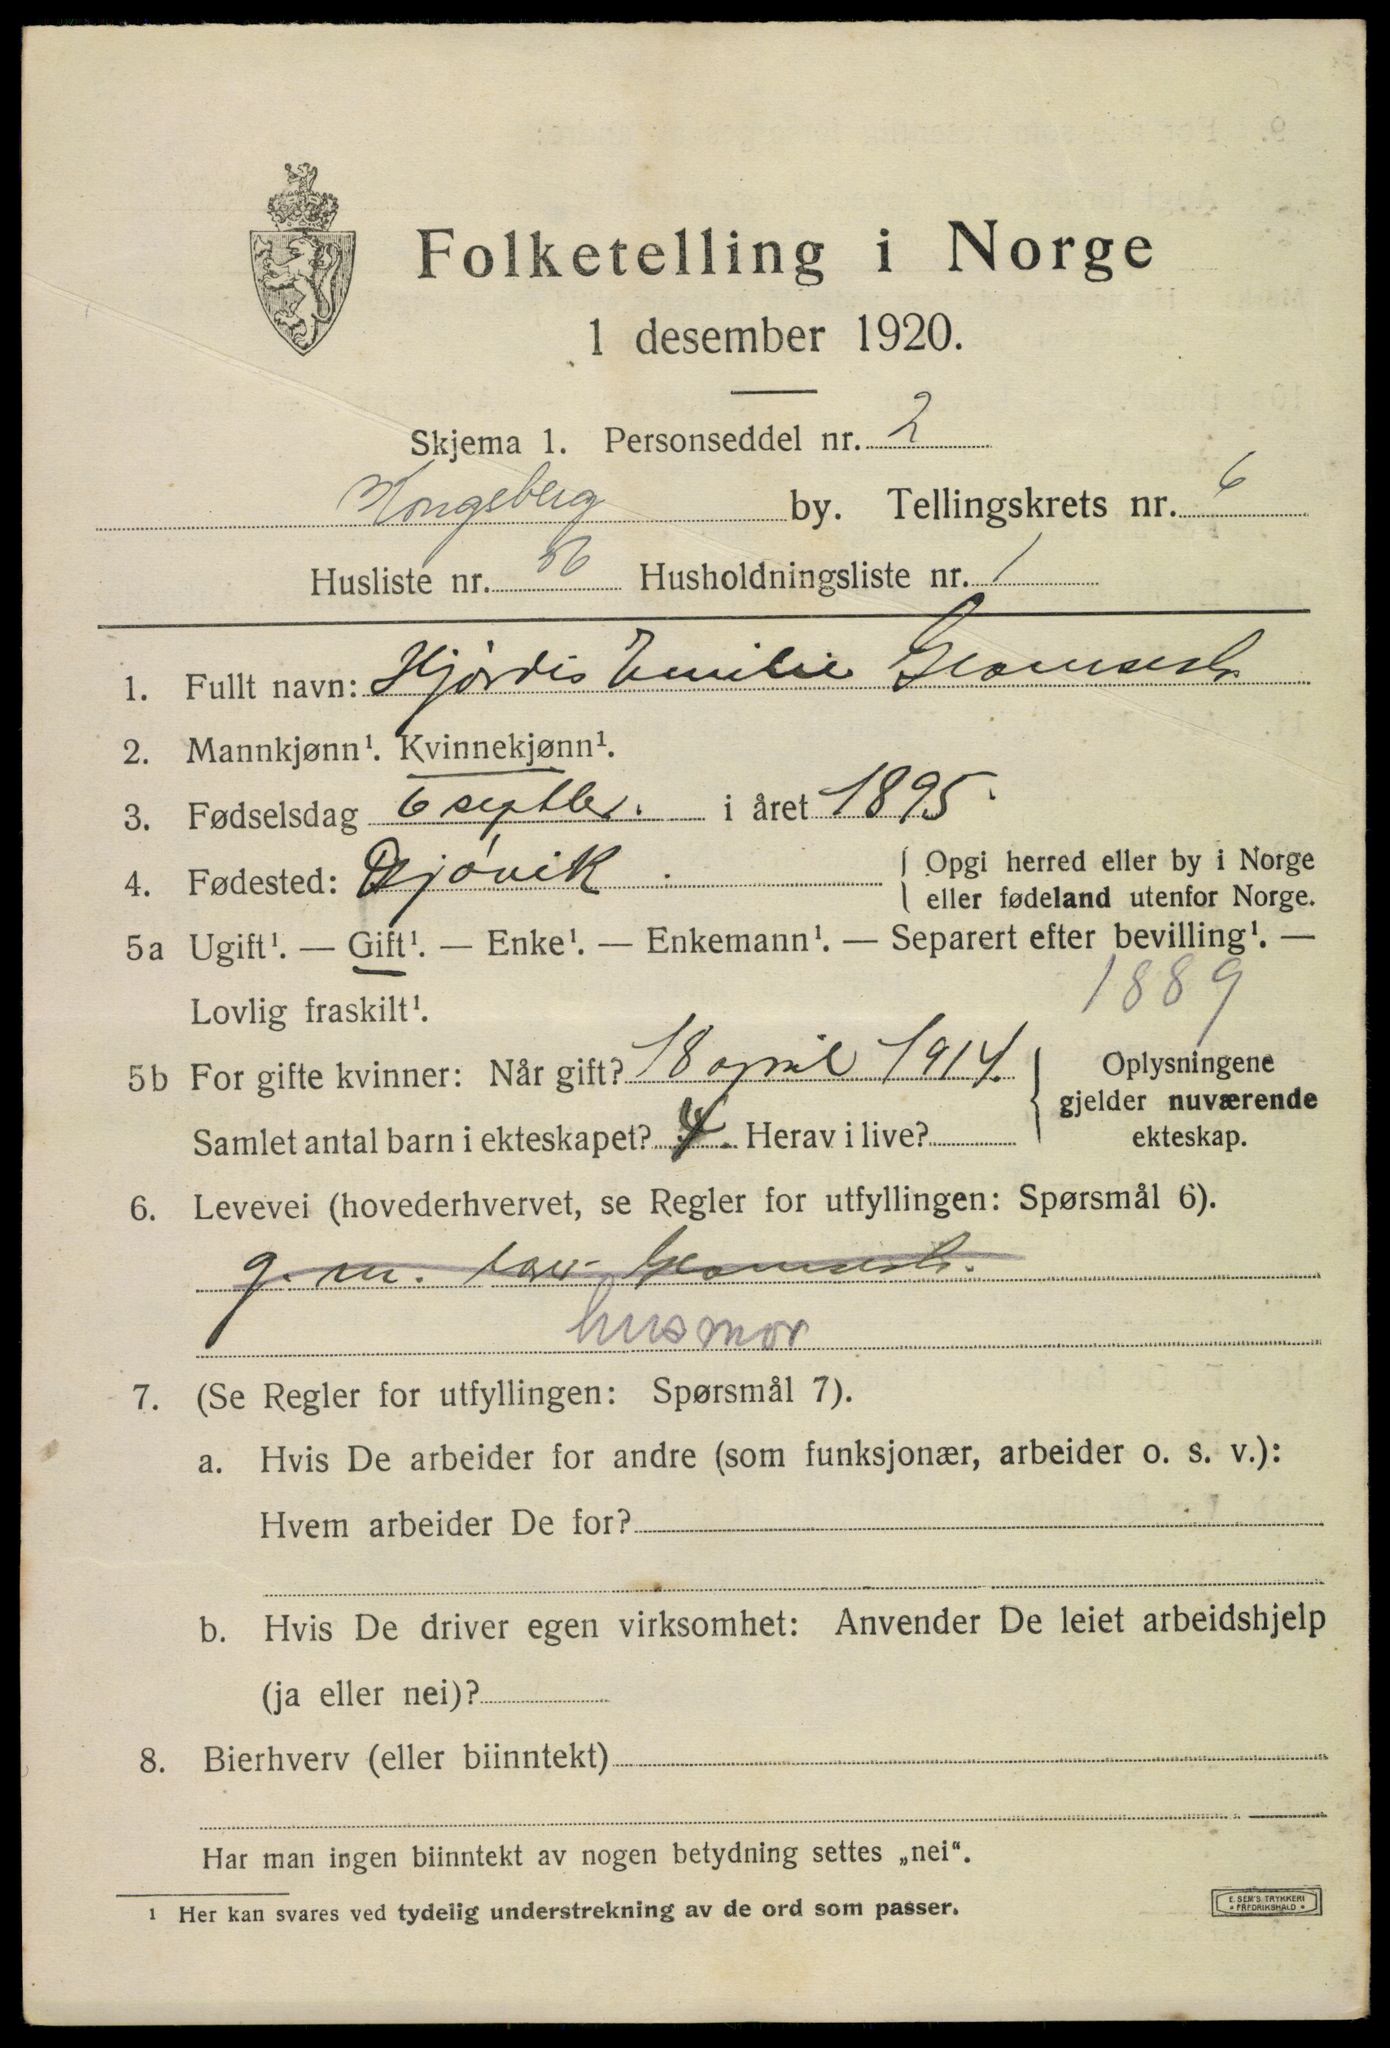 Folketelling i Norge
1 desember 1920.
Skjema 1. Personseddel nr. 2
Kongsberg by. Tellingskrets nr. 6
Husliste nr. Husholdningsliste nr. 1
1. Fullt navn: Hjördis Emilie
2. Mannkjønn¹. Kvinnekjønn¹.
3. Fødselsdag 6 septbr. i året 1895.
4. Fødested: Gjövik. { Opgi herred eller by i Norge
eller fødeland utenfor Norge.
5a Ugift¹. — Gift¹. — Enke¹. — Enkemann¹. — Separert efter bevilling¹. —
Lovlig fraskilt¹. 1889
5b For gifte kvinner: Når gift? 18 april 1914. } Oplysningene
gjelder nuværende
Samlet antal barn i ekteskapet? 4. Herav i live? ekteskap.
6. Levevei (hovederhvervet, se Regler for utfyllingen: Spørsmål 6).
g. m.
husmor
7. (Se Regler for utfyllingen: Spørsmål 7).
a. Hvis De arbeider for andre (som funksjonær, arbeider o. s. v.):
Hvem arbeider De for?
b. Hvis De driver egen virksomhet: Anvender De leiet arbeidshjelp
(ja eller nei)?
8. Bierhverv (eller biinntekt)
Har man ingen biinntekt av nogen betydning settes „nei“.
¹ Her kan svares ved tydelig understrekning av de ord som passer.
E. SEM'S TRYKKERI
FREDRIKSHALD